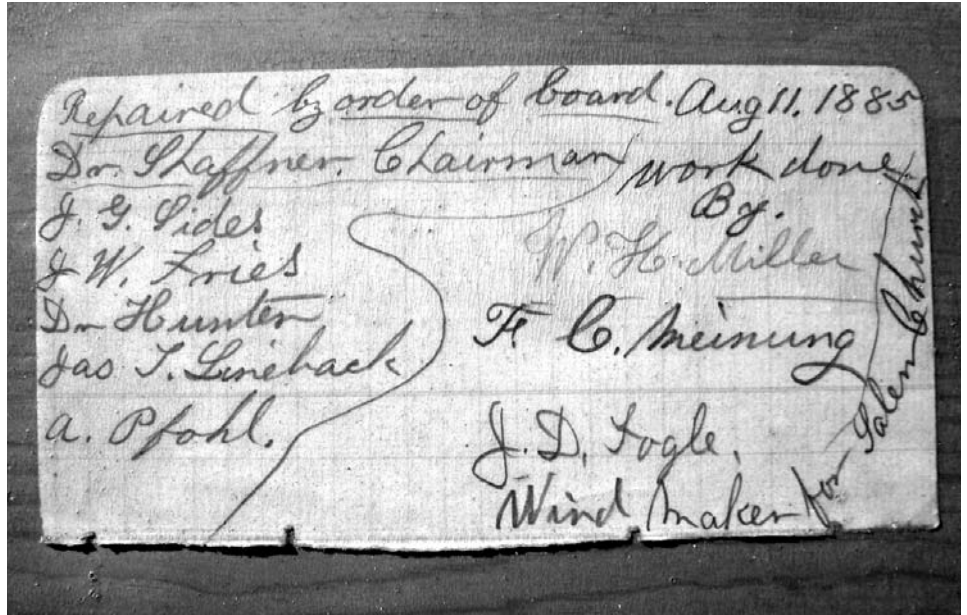 Repaired by order of board. Aug 11. 1885
Dr. Shaffner. Chairman
J. G. Sides
J. W. Fries
Dr Hunter
Jas T. Lineback
A. Pfohl.
work done
By.
W. H. Miller
F. C. Meinung
J. D. Fogle.
Wind maker for Salem Church